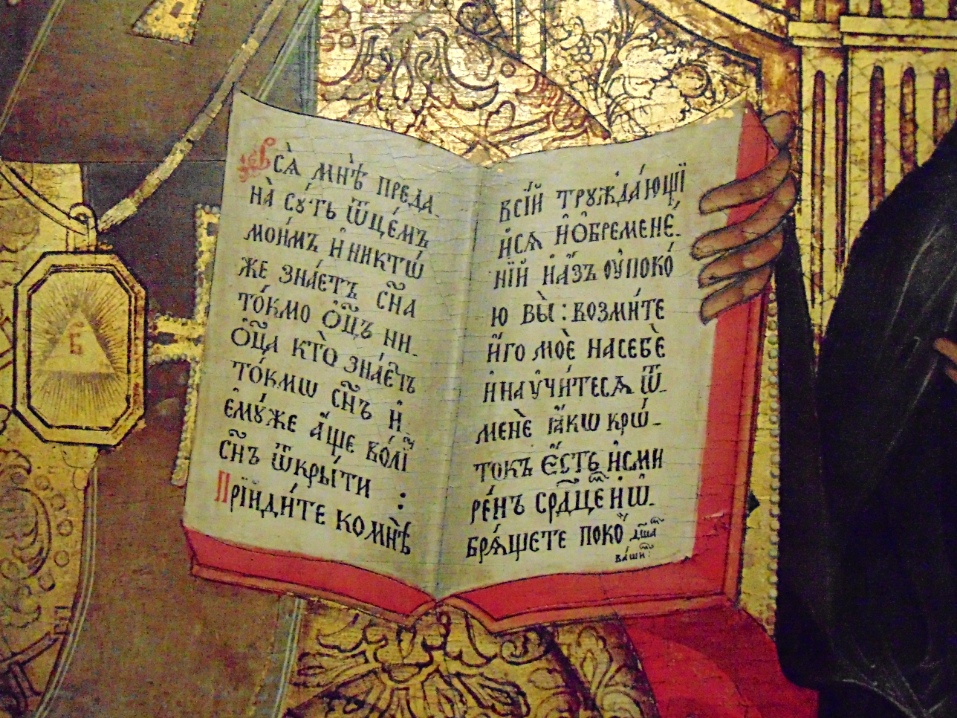 Б
Всѧ̀ мнѣ̀ преда
на̀ сꙋ́ть ѿц҃е́мъ
мои́мъ и҆ никтѡ́
же зна́етъ сн҃а
то́кмо ѻ҆ц҃ъ ни
ѻ҆ц҃а кто̀ зна́етъ
то́кмѡ сн҃ъ и҆
є҆мꙋ́же а҆́ще во́лї
сн҃ъ ѿкры́ти :
Прїиди́те комнѣ̀
всі́й трꙋжда́ющїї
и҆сѧ и҆ѻ҆бремене́
нїй и҆а҆́зъ ᲂу҆поко́
ю вы̀ : возми́те
и҆́го моѐ насебѐ
и҆ наꙋ҆чи́тесѧ ѿ
менѐ ꙗ҆́кѡ кро́
токъ є҆́сть и҆сми
ре́нъ срⷣцеⷨ и҆ ѡ҆
брѧ́щете поко́й дш҃аⷨ
ва́шиⷨ